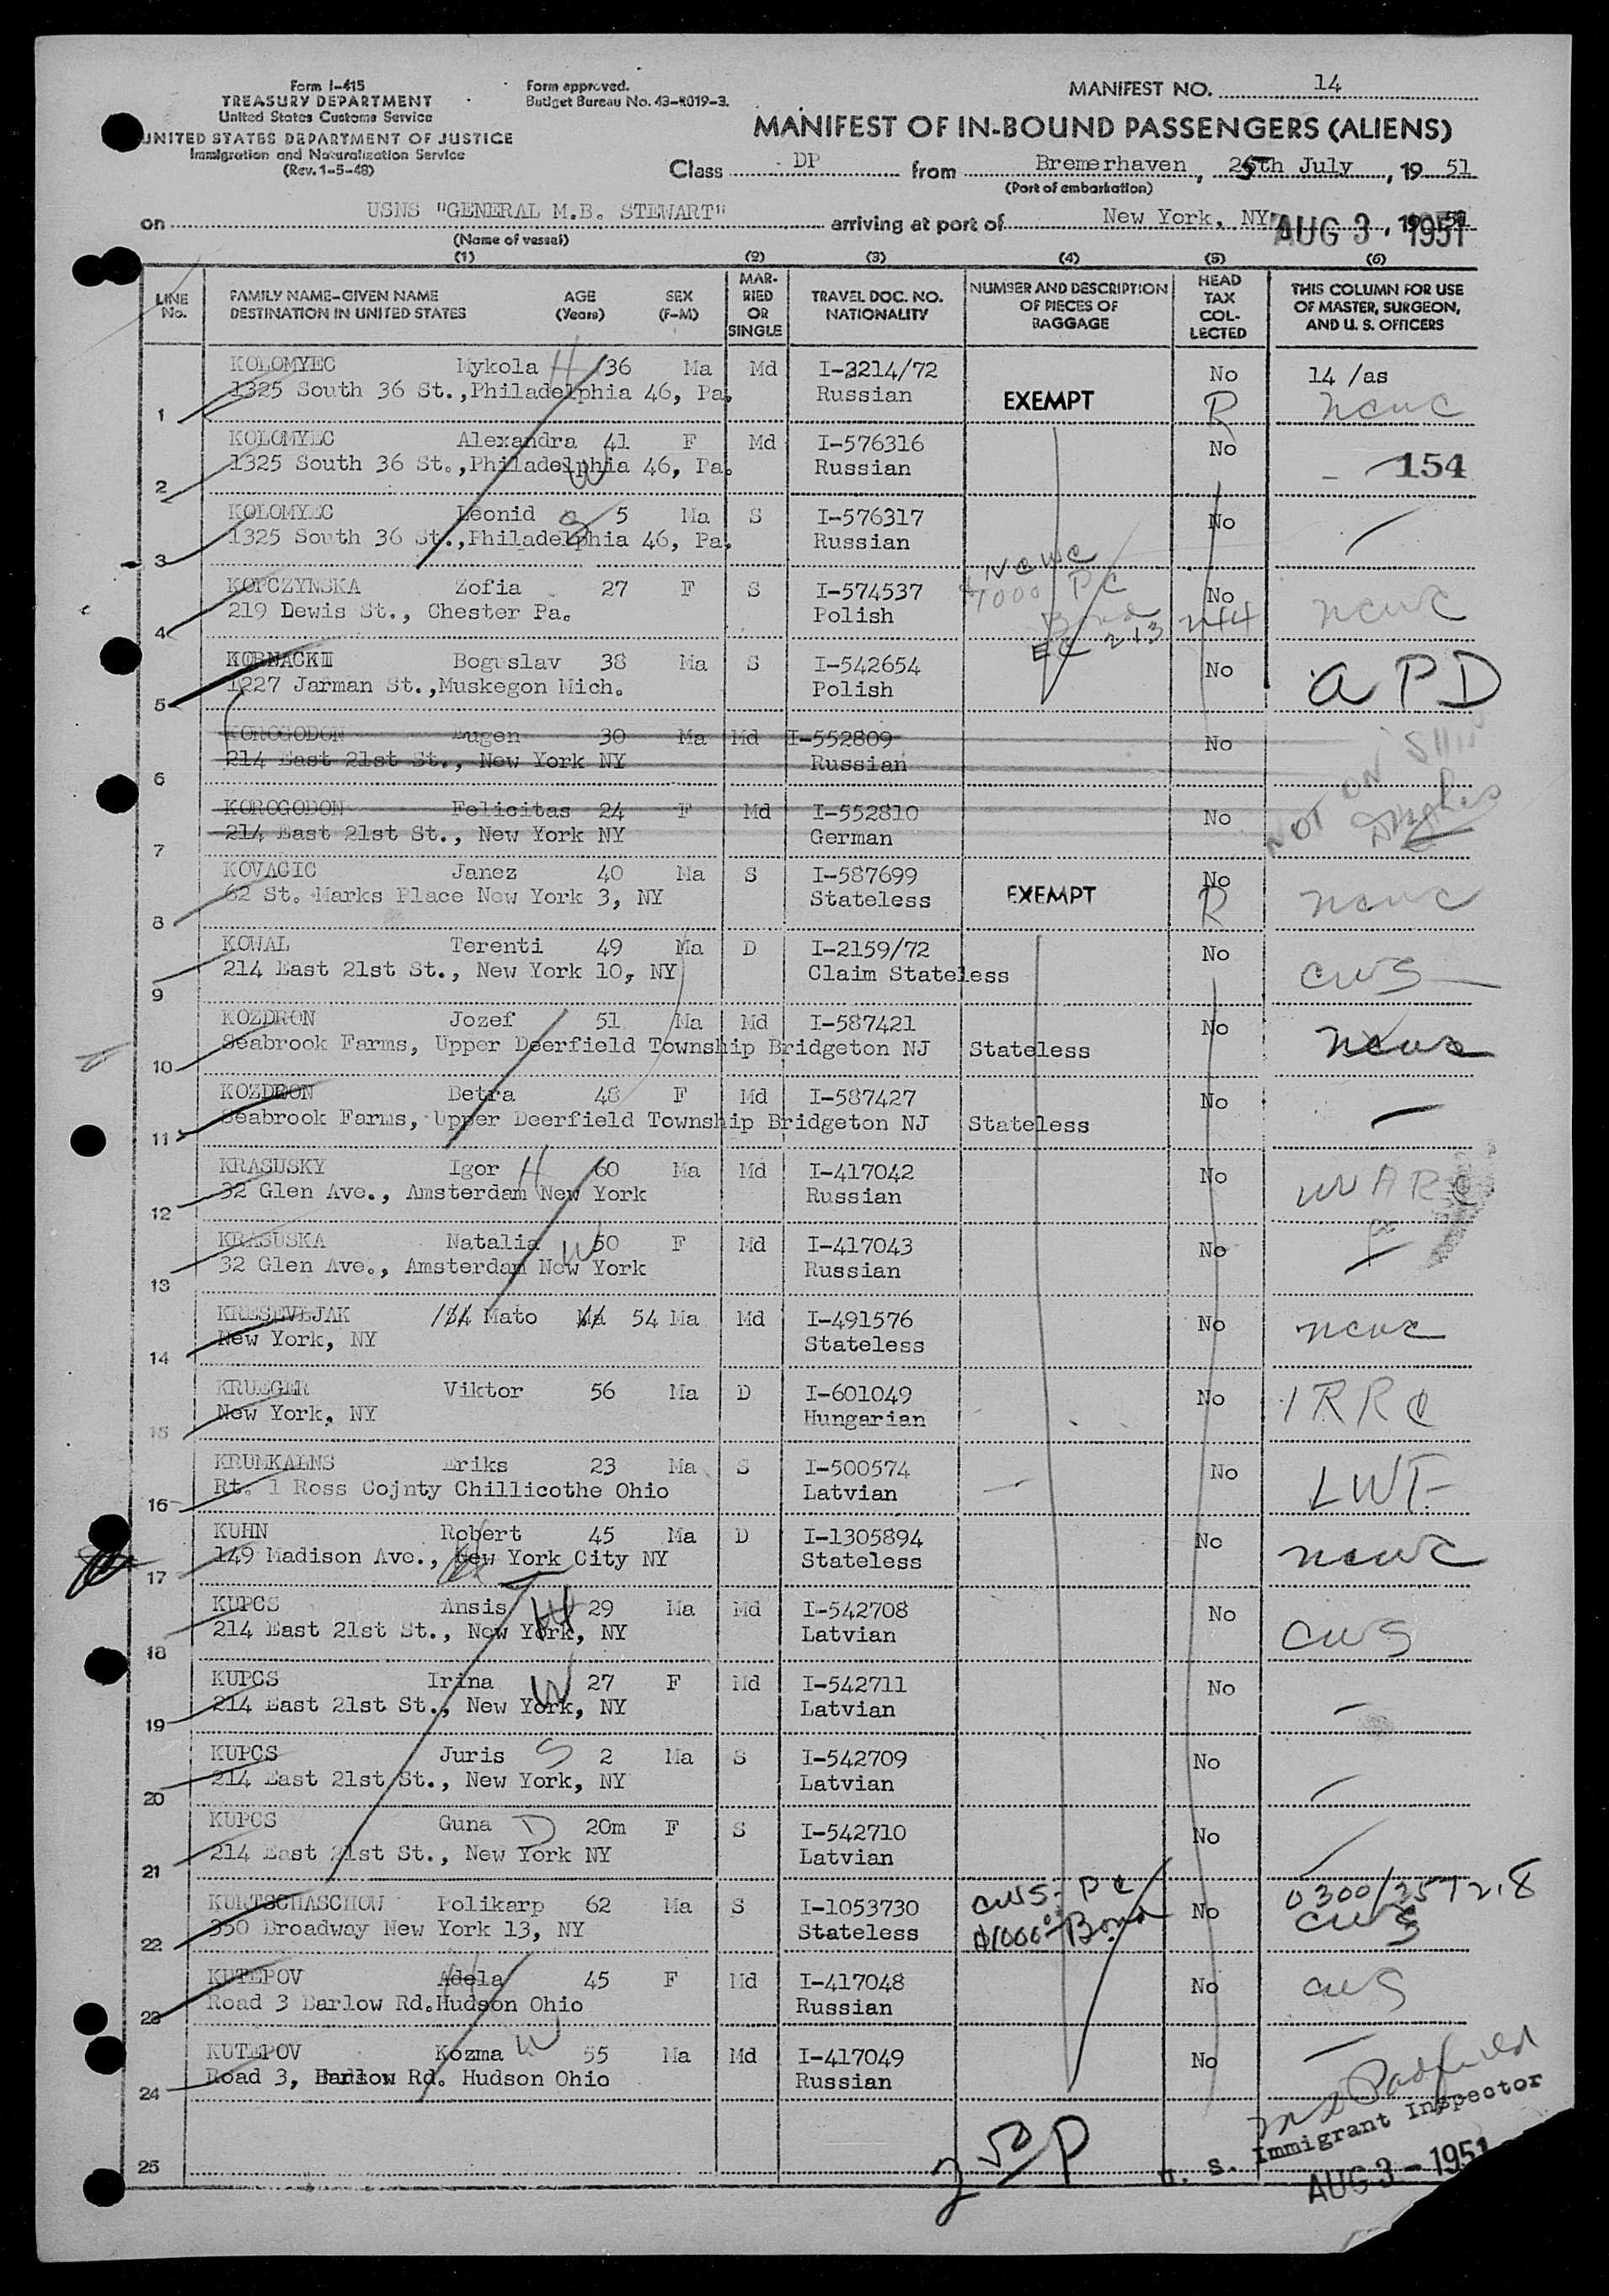 Form I-415
TREASURY DEPARTMENT
United States Customs Service
UNITED STATES DEPARTMENT OF JUSTICE
Immigration and Naturalization Service
(Rev. 1-5-48)
Form approved.
Budget Bureau No. 43-R019-3.
MANIFEST NO. 14
MANIFEST OF IN-BOUND PASSENGERS (ALIENS)
Class DP from Bremerhaven, 25th July, 19 51
(Port of embarkation)
on USNS "GENERAL M.B. STEWART" arriving at port of New York, NY, AUG 3, 1951
(Name of vessel)
(1) (2) (3) (4) (5) (6)
LINE No. FAMILY NAME-GIVEN NAME DESTINATION IN UNITED STATES AGE (Years) SEX (F-M) MARRIED OR SINGLE TRAVEL DOC. NO. NATIONALITY NUMBER AND DESCRIPTION OF PIECES OF BAGGAGE HEAD TAX COLLECTED THIS COLUMN FOR USE OF MASTER, SURGEON, AND U. S. OFFICERS
KOLOMYEC Mykola H 36 Ma Md I-2214/72 No 14 /as
1 1325 South 36 St.,Philadelphia 46, Pa. Russian EXEMPT R ncwc
KOLOMYEC Alexandra 41 F Md I-576316 No
2 1325 South 36 St.,Philadelphia 46, Pa. W Russian 154
KOLOMYEC Leonid S 5 Ma S I-576317 No
3 1325 South 36 St.,Philadelphia 46, Pa. Russian
KOPCZYNSKA Zofia 27 F S I-574537 NCWC 1000 PC No
4 219 Dewis St., Chester Pa. Polish Bond EC 213 244 ncwc
KORNACKI Boguslav 38 Ma S I-542654 No
5 1227 Jarman St.,Muskegon Mich. Polish a P D
KOROGODON Eugen 30 Ma Md I-552809 No
6 214 East 21st St., New York NY Russian NOT ON SHIP
KOROGODON Felicitas 24 F Md I-552810 No
7 214 East 21st St., New York NY German
KOVACIC Janez 40 Ma S I-587699 No
8 62 St. Marks Place New York 3, NY Stateless EXEMPT R ncwc
KOWAL Terenti 49 Ma D I-2159/72 No
9 214 East 21st St., New York 10, NY Claim Stateless cws
KOZDRON Jozef 51 Ma Md I-587421 No
10 Seabrook Farms, Upper Deerfield Township Bridgeton NJ Stateless ncwc
KOZDRON Betra 48 F Md I-587427 No
11 Seabrook Farms, Upper Deerfield Township Bridgeton NJ Stateless
KRASUSKY Igor H 60 Ma Md I-417042 No
12 32 Glen Ave., Amsterdam New York Russian
KRASUSKA Natalia W 50 F Md I-417043 No
13 32 Glen Ave., Amsterdam New York Russian
KRESEVLJAK Mato 54 Ma Md I-491576 No
14 New York, NY Stateless ncwc
KRUEGER Viktor 56 Ma D I-601049 No
15 New York, NY Hungarian IRRC
KRUMKALNS Eriks 23 Ma S I-500574 No
16 Rt. 1 Ross Cojnty Chillicothe Ohio Latvian LWF
KUHN Robert 45 Ma D I-1305894 No
17 149 Madison Ave., New York City NY Stateless ncwc
KUPCS Ansis H 29 Ma Md I-542708 No
18 214 East 21st St., New York, NY Latvian cws
KUPCS Irina W 27 F Md I-542711 No
19 214 East 21st St., New York, NY Latvian
KUPCS Juris S 2 Ma S I-542709 No
20 214 East 21st St., New York, NY Latvian
KUPCS Guna D 20m F S I-542710 No
21 214 East 21st St., New York NY Latvian
KURTSCHASCHOW Polikarp 62 Ma S I-1053730 cws- PC No 0300/
22 350 Broadway New York 13, NY Stateless $1000 Bond cws
KUTEPOV Adela H 45 F Md I-417048 No
23 Road 3 Barlow Rd.Hudson Ohio Russian cws
KUTEPOV Kozma W 55 Ma Md I-417049 No
24 Road 3, Barlow Rd. Hudson Ohio Russian
25
U. S. Immigrant Inspector
AUG 3 - 1951